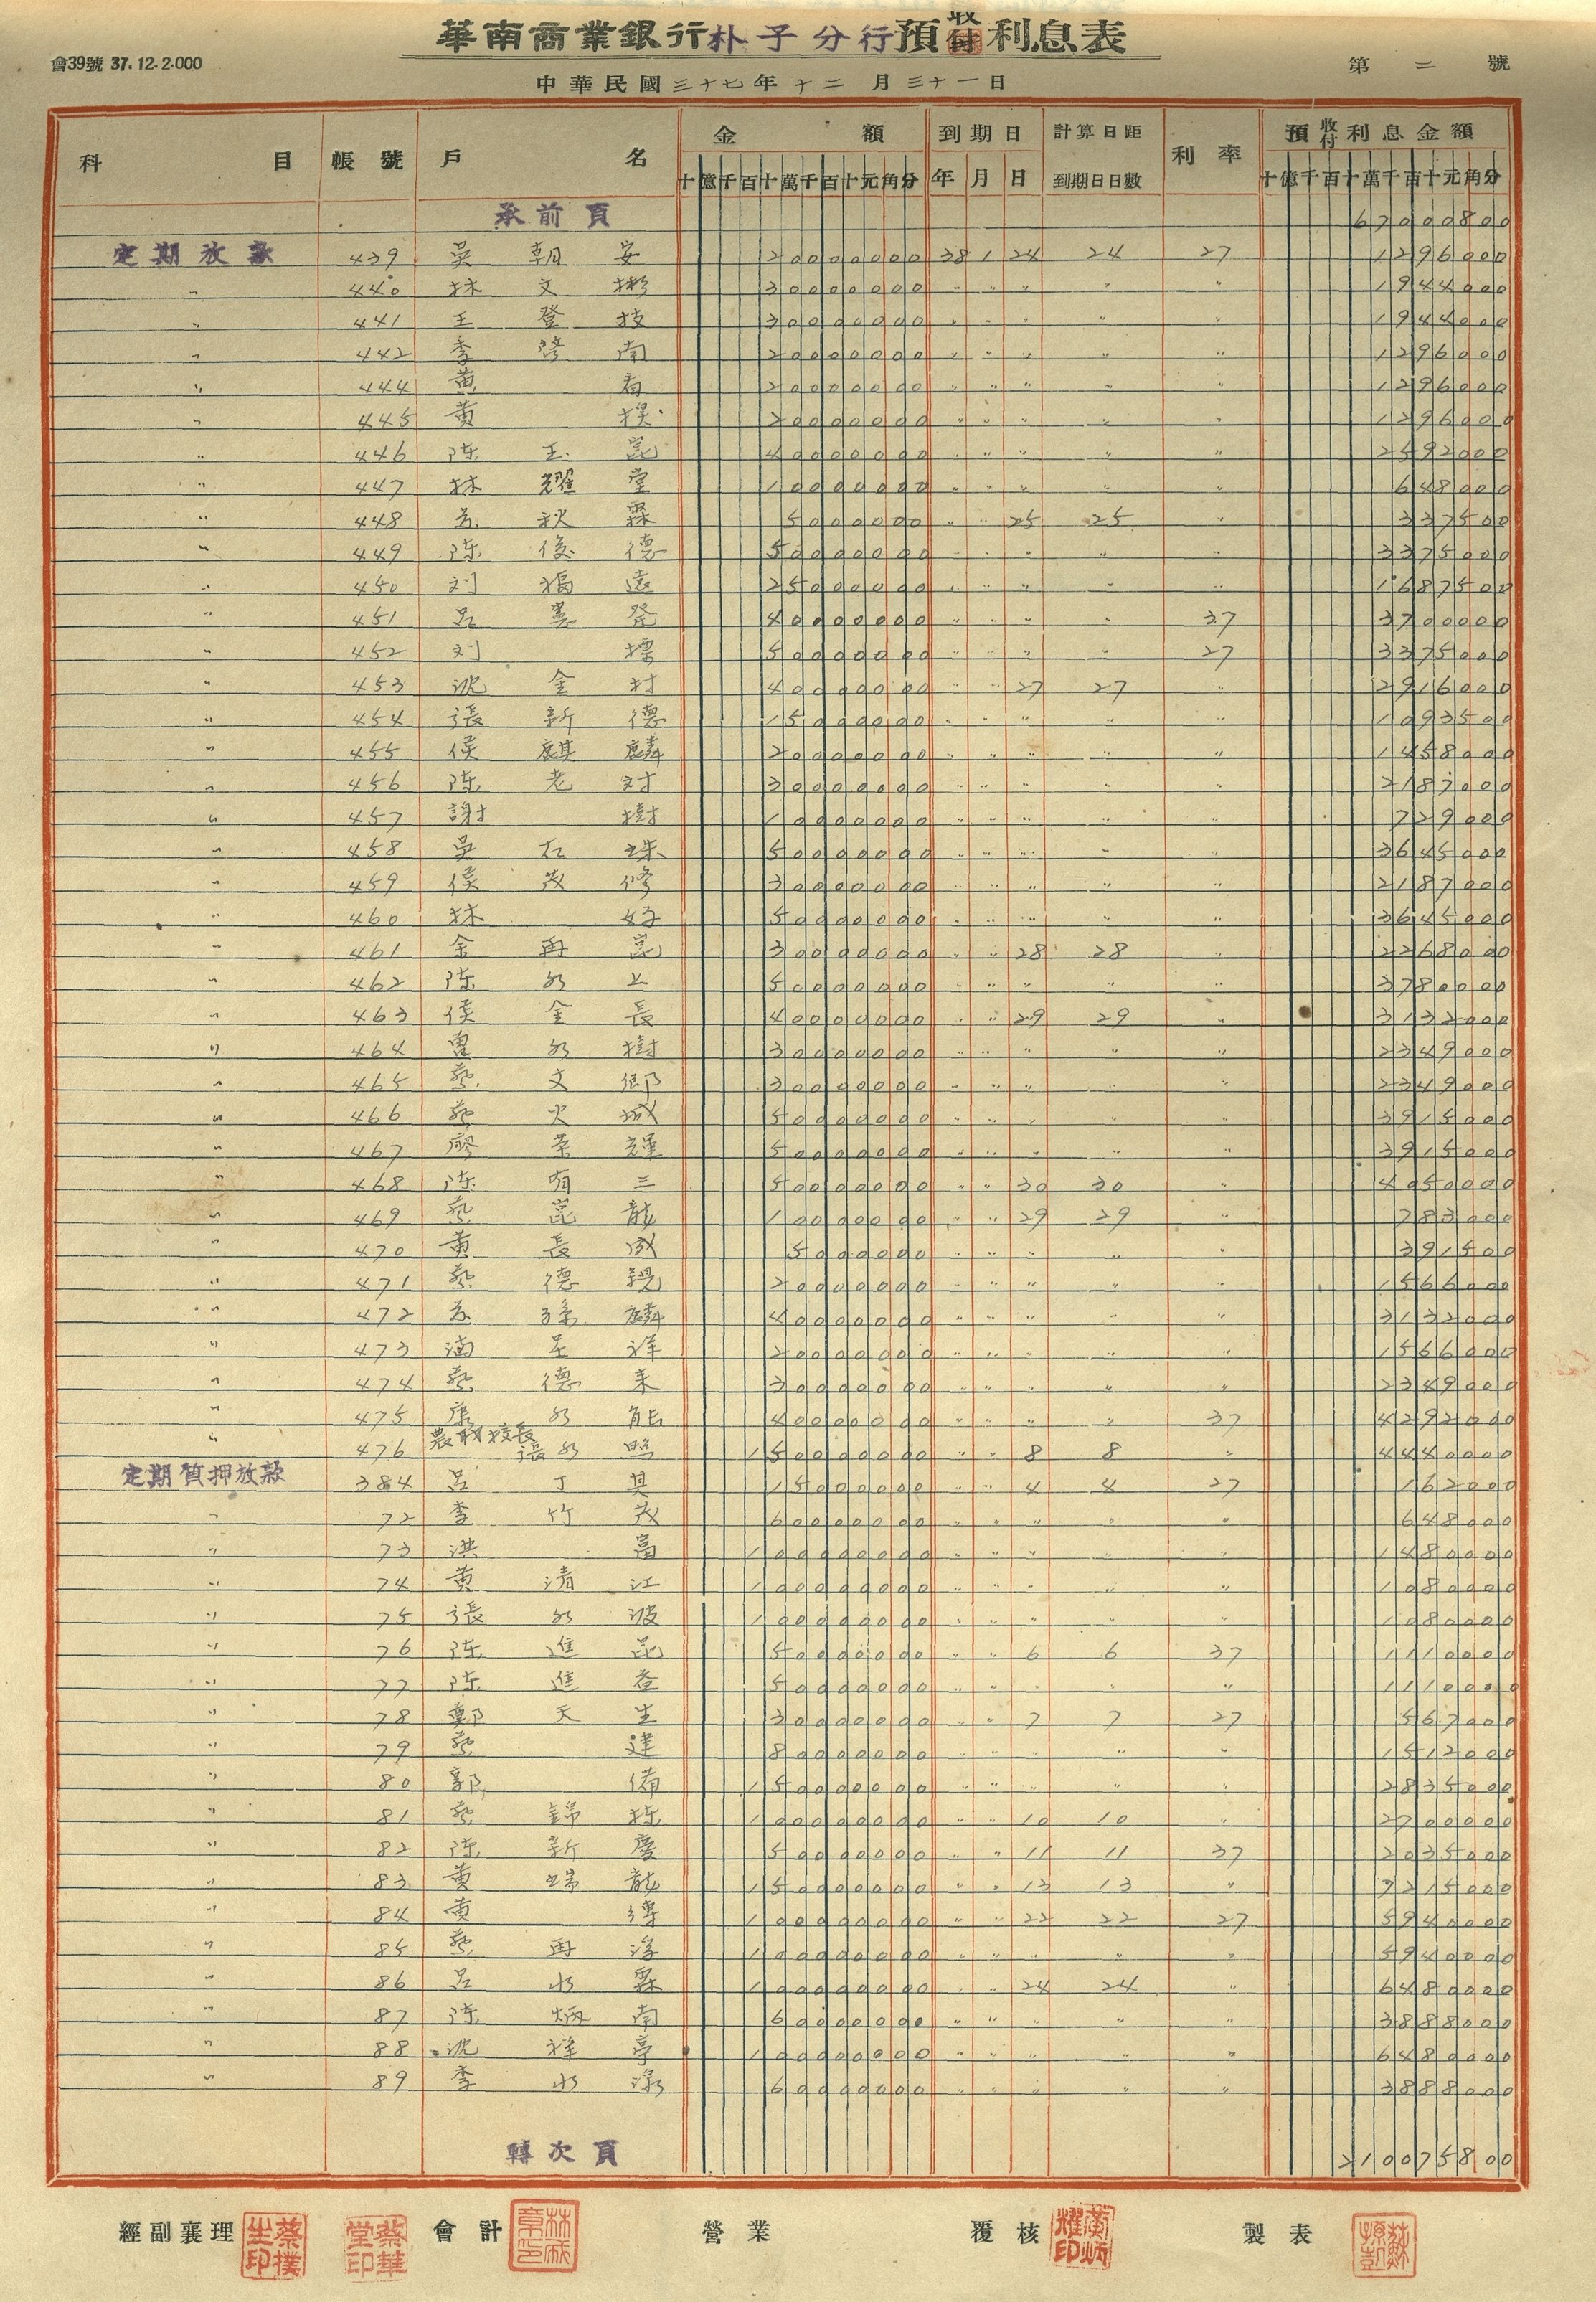 華南商業銀行朴子分行預收付利息表
會39號 37.12.2.000
中華民國三十七年十二月三十一日
第二號
科目 帳號 戶名 金額 到期日 計算日距到期日日數 利率 預收付利息金額
十億千百十萬千百十元角分 年 月 日 十億千百十萬千百十元角分
承前頁 67000800
定期放款 439 吳朝安 20000000 38 1 24 24 27 1296000
〃 440 林文彬 30000000 〃 〃 〃 〃 〃 1944000
〃 441 王登技 30000000 〃 〃 〃 〃 〃 1944000
〃 442 李 南 20000000 〃 〃 〃 〃 〃 1296000
〃 444 黃 看 20000000 〃 〃 〃 〃 〃 1296000
〃 445 黃 20000000 〃 〃 〃 〃 〃 1296000
〃 446 陈王崑 40000000 〃 〃 〃 〃 〃 2592000
〃 447 林耀堂 10000000 〃 〃 〃 〃 〃 648000
〃 448 秋霖 5000000 〃 〃 25 25 〃 337500
〃 449 陈俊德 50000000 〃 〃 〃 〃 〃 3375000
〃 450 刘福遠 25000000 〃 〃 〃 〃 〃 1687500
〃 451 呂 発 40000000 〃 〃 〃 〃 37 3700000
〃 452 刘標 50000000 〃 〃 〃 〃 27 3375000
〃 453 沈金村 40000000 〃 〃 27 27 〃 2916000
〃 454 張新德 15000000 〃 〃 〃 〃 〃 1093500
〃 455 侯麒麟 20000000 〃 〃 〃 〃 〃 1458000
〃 456 陈老対 30000000 〃 〃 〃 〃 〃 2187000
〃 457 謝樹 10000000 〃 〃 〃 〃 〃 729000
〃 458 吳石珠 50000000 〃 〃 〃 〃 〃 3645000
〃 459 侯茂修 30000000 〃 〃 〃 〃 〃 2187000
〃 460 林好 50000000 〃 〃 〃 〃 〃 3645000
〃 461 余再崑 30000000 〃 〃 28 28 〃 2268000
〃 462 陈水上 50000000 〃 〃 〃 〃 〃 3780000
〃 463 侯金長 40000000 〃 〃 29 29 〃 3132000
〃 464 曾水樹 30000000 〃 〃 〃 〃 〃 2349000
〃 465 蔡文鄉 30000000 〃 〃 〃 〃 〃 2349000
〃 466 蔡火城 50000000 〃 〃 〃 〃 〃 3915000
〃 467 廖荣輝 50000000 〃 〃 〃 〃 〃 3915000
〃 468 陈有三 50000000 〃 〃 30 30 〃 4050000
〃 469 蔡崑龍 10000000 〃 〃 29 29 〃 783000
〃 470 黃長成 5000000 〃 〃 〃 〃 〃 391500
〃 471 蔡德 20000000 〃 〃 〃 〃 〃 1566000
〃 472 孫麟 40000000 〃 〃 〃 〃 〃 3132000
〃 473 涵 祥 20000000 〃 〃 〃 〃 〃 1566000
〃 474 蔡德来 30000000 〃 〃 〃 〃 〃 2349000
〃 475 康水能 40000000 〃 〃 〃 〃 37 4292000
〃 476 農職校長張水照 150000000 〃 〃 8 8 〃 4440000
定期質押放款 384 呂丁其 15000000 〃 〃 4 4 27 162000
〃 72 李竹茂 60000000 〃 〃 〃 〃 〃 648000
〃 73 洪富 100000000 〃 〃 〃 〃 〃 1480000
〃 74 黃清江 100000000 〃 〃 〃 〃 〃 1080000
〃 75 張水波 100000000 〃 〃 〃 〃 〃 1080000
〃 76 陈進 50000000 〃 〃 6 6 37 1110000
〃 77 陈進益 50000000 〃 〃 〃 〃 〃 1110000
〃 78 鄭天生 30000000 〃 〃 7 7 27 567000
〃 79 蔡達 80000000 〃 〃 〃 〃 〃 1512000
〃 80 郭備 150000000 〃 〃 〃 〃 〃 2835000
〃 81 蔡錦 100000000 〃 〃 10 10 〃 2700000
〃 82 陈新慶 50000000 〃 〃 11 11 37 2035000
〃 83 黃瑞龍 150000000 〃 〃 13 13 〃 7215000
〃 84 黃 100000000 〃 〃 22 22 27 5940000
〃 85 蔡再 100000000 〃 〃 〃 〃 〃 5940000
〃 86 呂水霖 100000000 〃 〃 24 24 〃 6480000
〃 87 陈炳南 60000000 〃 〃 〃 〃 〃 3888000
〃 88 沈祥亭 100000000 〃 〃 〃 〃 〃 6480000
〃 89 李水 60000000 〃 〃 〃 〃 〃 3888000
轉次頁 210075800
經副襄理 蔡撲生印 蔡華堂印 會計 營業 覆核 製表